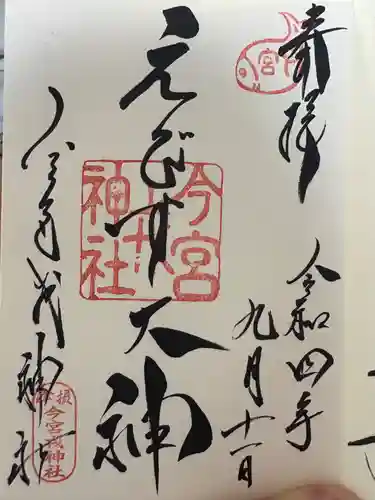 奉拝
令和四年
九月十一日
えびす大神
今宮戎神社
今宮
神社
宮
今宮戎神社